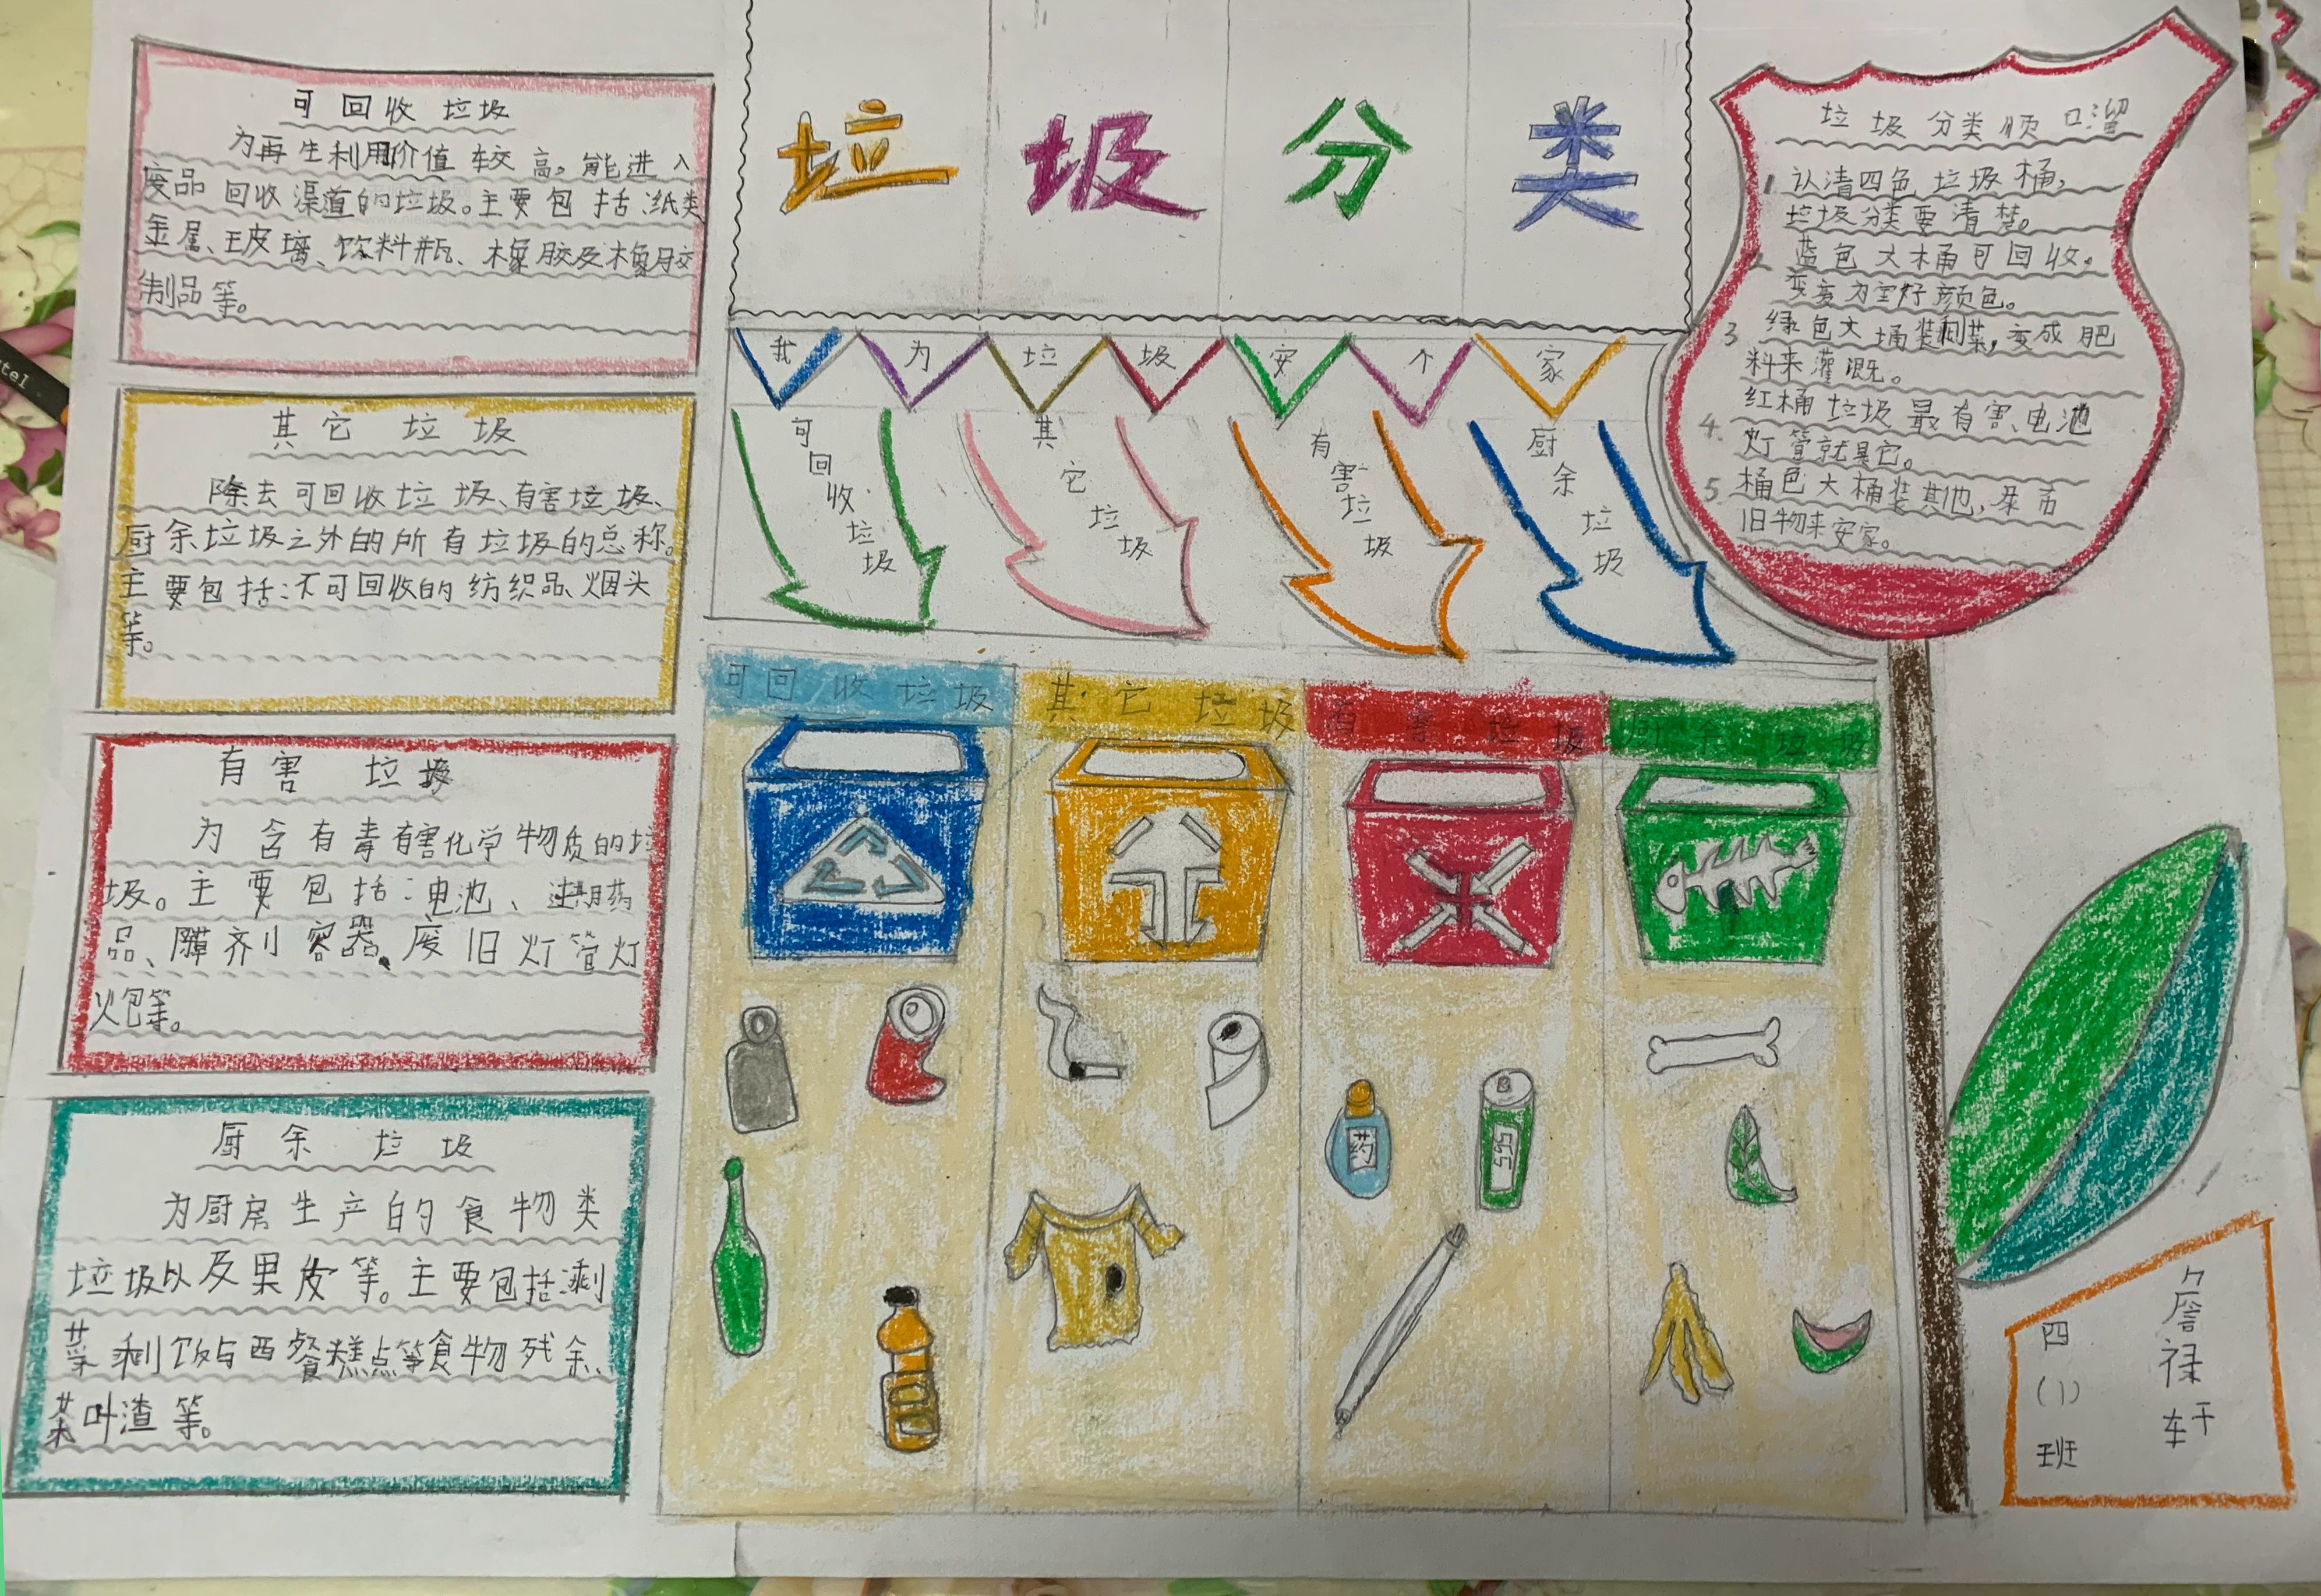 垃圾分类
可回收垃圾
为再生利用价值较高。能进入
废品回收渠道的垃圾。主要包括:纸类
金属、玻璃、饮料瓶、橡胶及橡胶
制品等。
其它垃圾
除去可回收垃圾、有害垃圾、
厨余垃圾之外的所有垃圾的总称。
主要包括:不可回收的纺织品、烟头
等。
有害垃圾
为含有毒有害化学物质的垃
圾。主要包括:电池、过期药
品、剂容器、废旧灯管灯
火包等。
厨余垃圾
为厨房生产的食物类
垃圾以及果皮等。主要包括:剩
菜剩饭与西餐糕点等食物残余、
菜叶渣等。
我为垃圾安个家
可回收垃圾
其它垃圾
有害垃圾
厨余垃圾
可回收垃圾
其它垃圾
有害垃圾
厨余垃圾
药
565
垃圾分类顺口溜
1 认清四色垃圾桶,
垃圾分类要清楚。
2 蓝色大桶可回收,
变废为宝好颜色。
3 绿色大桶装剩菜,变成肥
料来灌溉。
4. 红桶垃圾最有害、电池
灯管就是它。
5. 桶色大桶装其他,尿布
旧物来安家。
四(1)班
詹禄轩